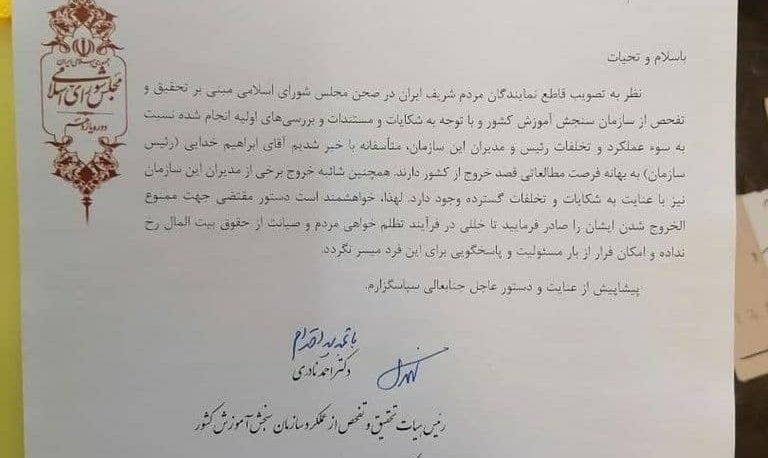 جمهوری اسلامی ایران
مجلس شورای اسلامی
دوره یازدهم
باسلام و تحیات
نظر به تصویب قاطع نمایندگان مردم شریف ایران در صحن مجلس شورای اسلامی مبنی بر تحقیق و
تفحص از سازمان سنجش آموزش کشور و با توجه به شکایات و مستندات و بررسی‌های اولیه انجام شده نسبت
به سوء عملکرد و تخلفات رئیس و مدیران این سازمان، متأسفانه با خبر شدیم آقای ابراهیم خدایی (رئیس
سازمان) به بهانه فرصت مطالعاتی قصد خروج از کشور دارند. همچنین شائبه خروج برخی از مدیران این سازمان
نیز با عنایت به شکایات و تخلفات گسترده وجود دارد. لهذا، خواهشمند است دستور مقتضی جهت ممنوع
الخروج شدن ایشان را صادر فرمایید تا خللی در فرآیند تظلم خواهی مردم و صیانت از حقوق بیت المال رخ
نداده و امکان فرار از بار مسئولیت و پاسخگویی برای این فرد میسر نگردد.
پیشاپیش از عنایت و دستور عاجل جنابعالی سپاسگزارم.
با تجدید احترام
دکتر احمد نادری
رئیس هیات تحقیق و تفحص از عملکرد سازمان سنجش آموزش کشور